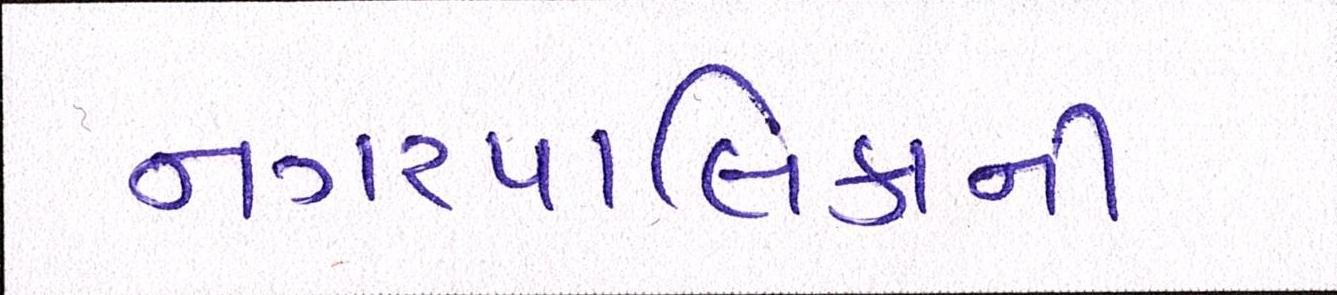 નગરપાલિકાની